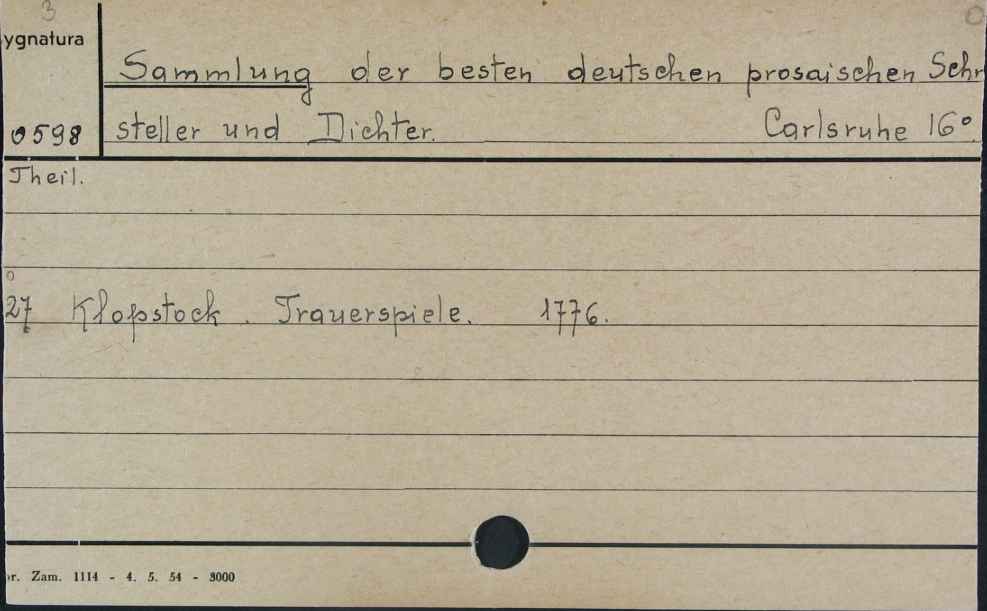 3
ygnatura
Sammlung der besten deutschen prosaischen Schr
0598 steller und Dichter. Carlsruhe 16°.
Theil.
27 Klopstock. Trauerspiele. 1776.
r. Zam. 1114 - 4. 5. 54 - 3000